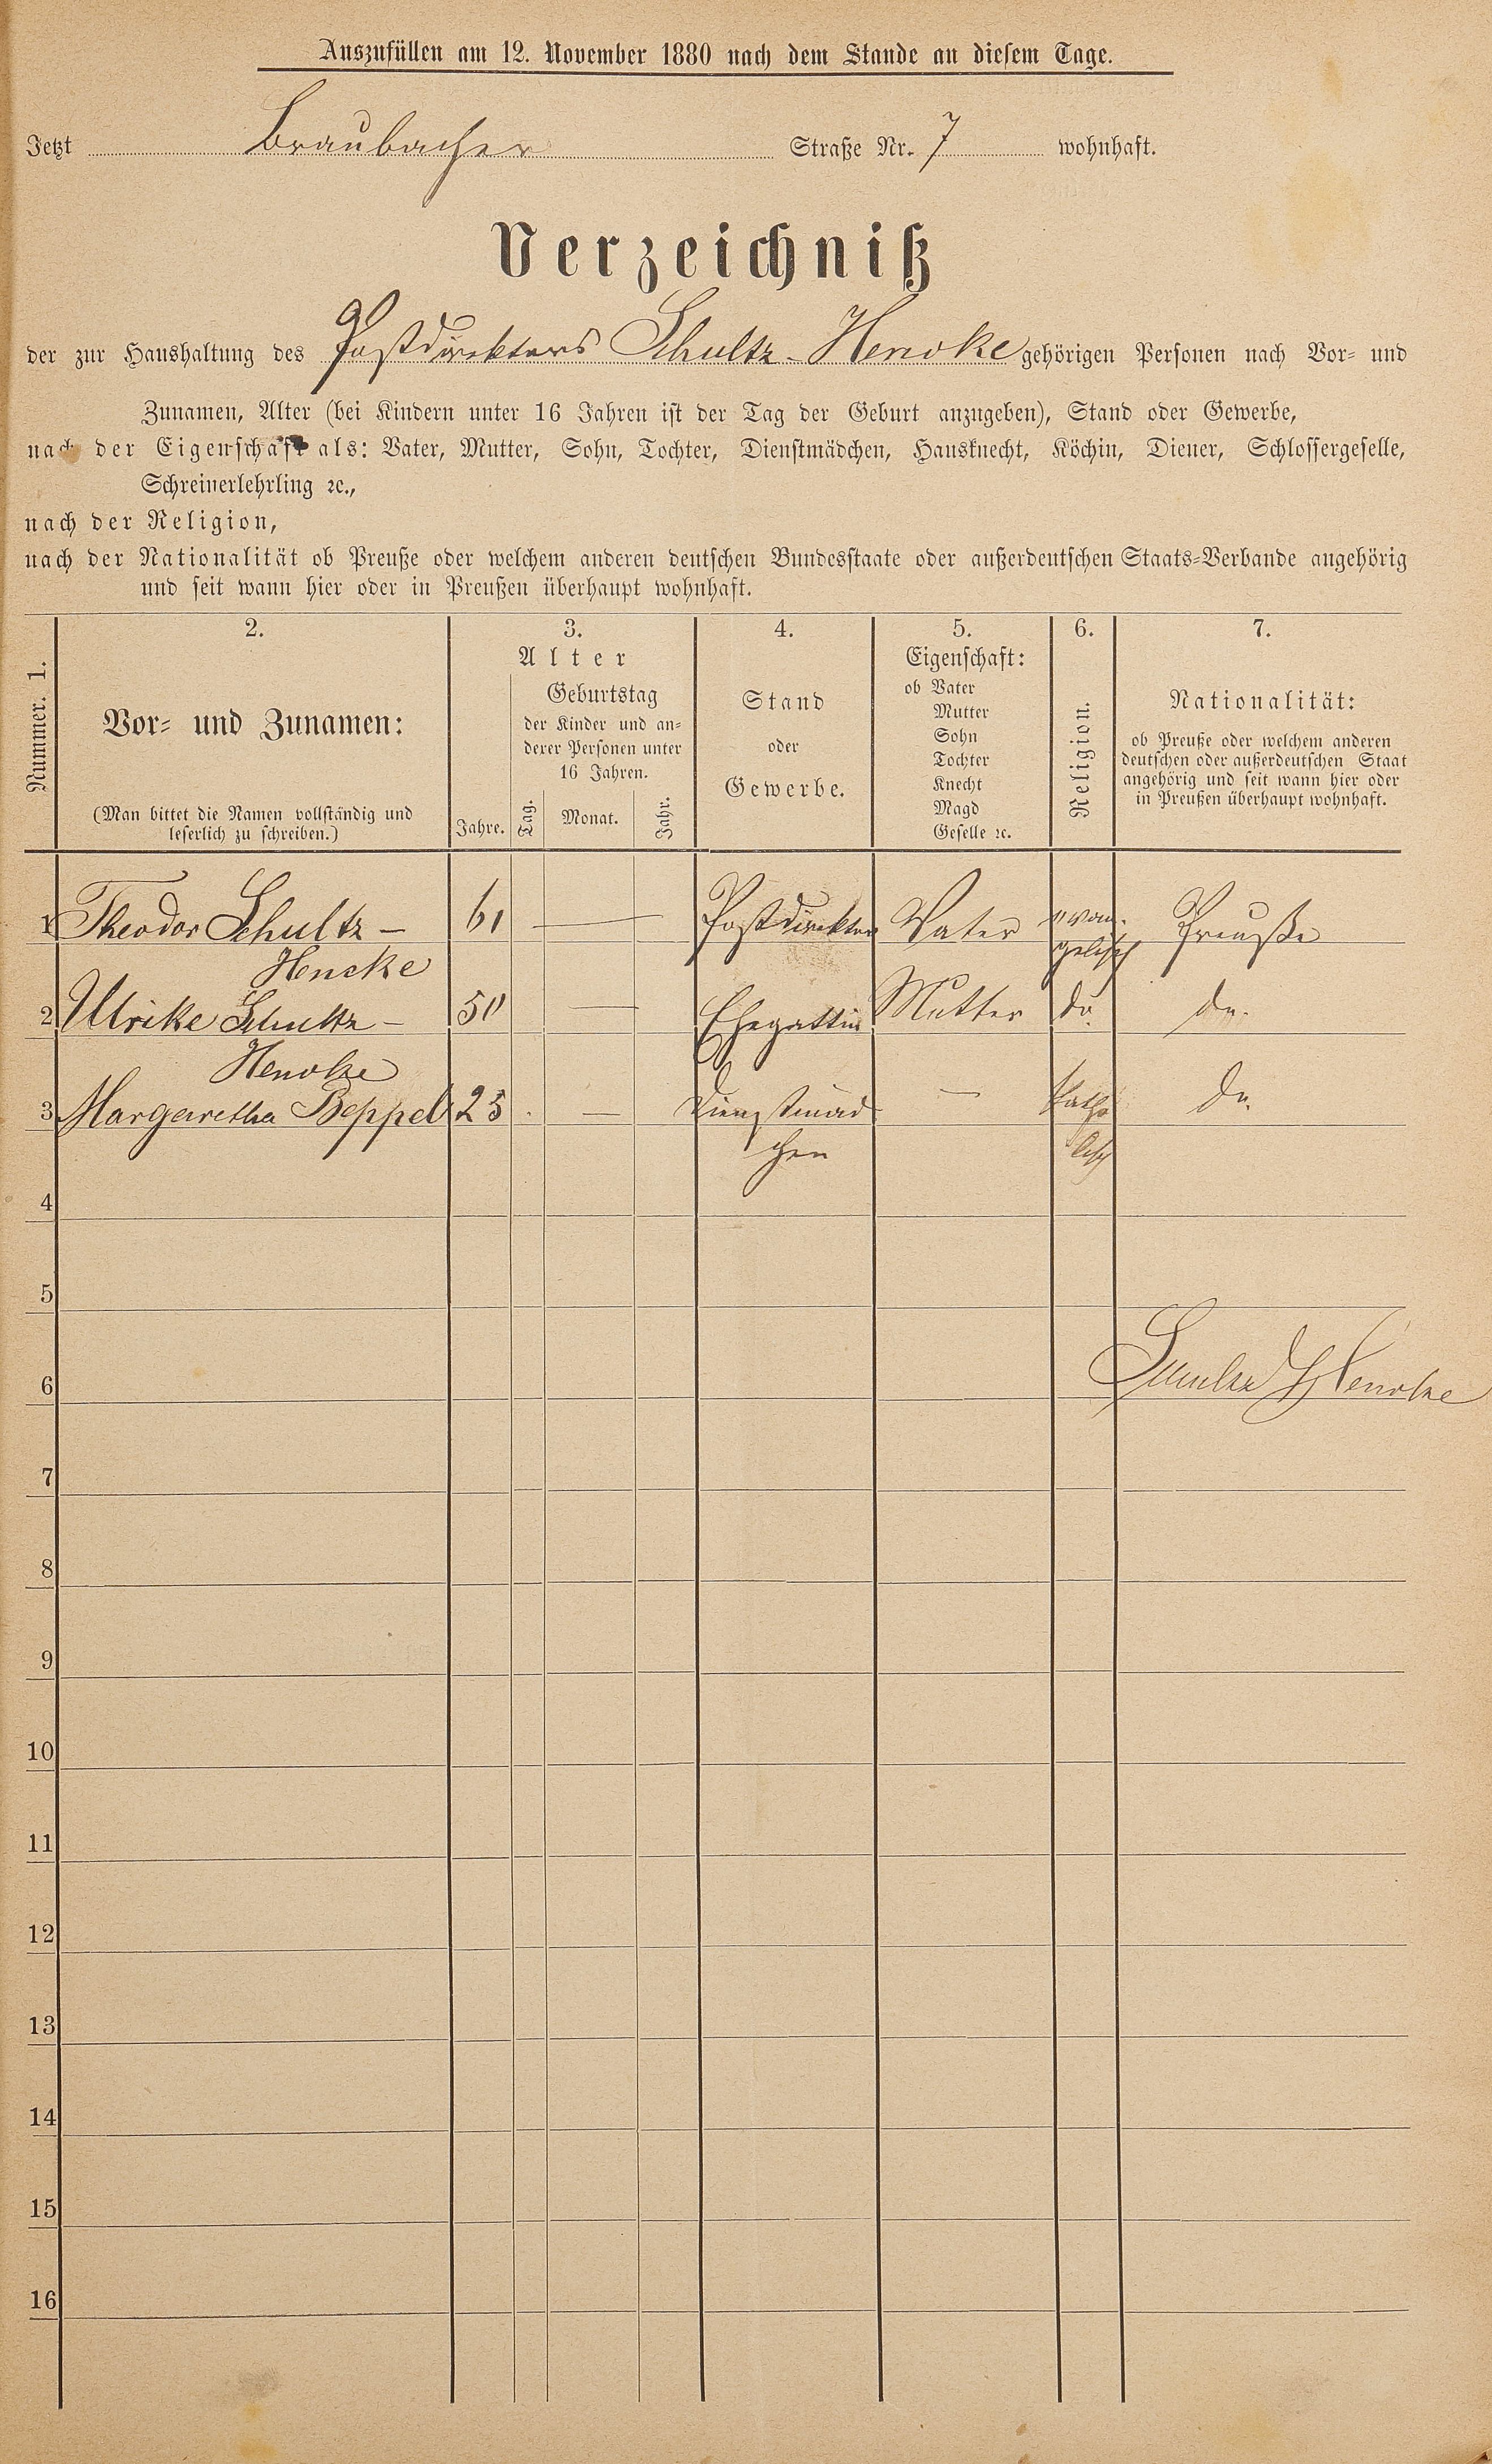 Auszufüllen am 12. November 1880 nach dem Stande an diesem Tage.
Jetzt Braubacher Straße Nr. 7 wohnhaft.
Verzeichniß
der zur Haushaltung des Postdirektors Schultz-Hencke gehörigen Personen nach Vor- und
Zunamen, Alter (bei Kindern unter 16 Jahren ist der Tag der Geburt anzugeben), Stand oder Gewerbe,
nach der Eigenschaft als: Vater, Mutter, Sohn, Tochter, Dienstmädchen, Hausknecht, Köchin, Diener, Schlossergeselle,
Schreinerlehrling ꝛc.,
nach der Religion,
nach der Nationalität ob Preuße oder welchem anderen deutschen Bundesstaate oder außerdeutschen Staats-Verbande angehörig
und seit wann hier oder in Preußen überhaupt wohnhaft.
Nummer. 1.
2.
Vor- und Zunamen:
(Man bittet die Namen vollständig und
leserlich zu schreiben.)
3.
Alter
Jahre.
Geburtstag
der Kinder und an-
derer Personen unter
16 Jahren.
Tag. Monat. Jahr.
4.
Stand
oder
Gewerbe.
5.
Eigenschaft:
ob Vater
Mutter
Sohn
Tochter
Knecht
Magd
Geselle ꝛc.
6.
Religion.
7.
Nationalität:
ob Preuße oder welchem anderen
deutschen oder außerdeutschen Staat
angehörig und seit wann hier oder
in Preußen überhaupt wohnhaft.
1 Theodor Schultz- 61 — Postdirektor Vater evan- Preuße
Hencke gelisch
2 Ulrike Schultz- 50 — Ehegattin Mutter do. do.
Hencke
3 Margaretha Beppel 25 — Dienstmäd — katho do.
chen lisch
4
5
Schultz Hencke
6
7
8
9
10
11
12
13
14
15
16